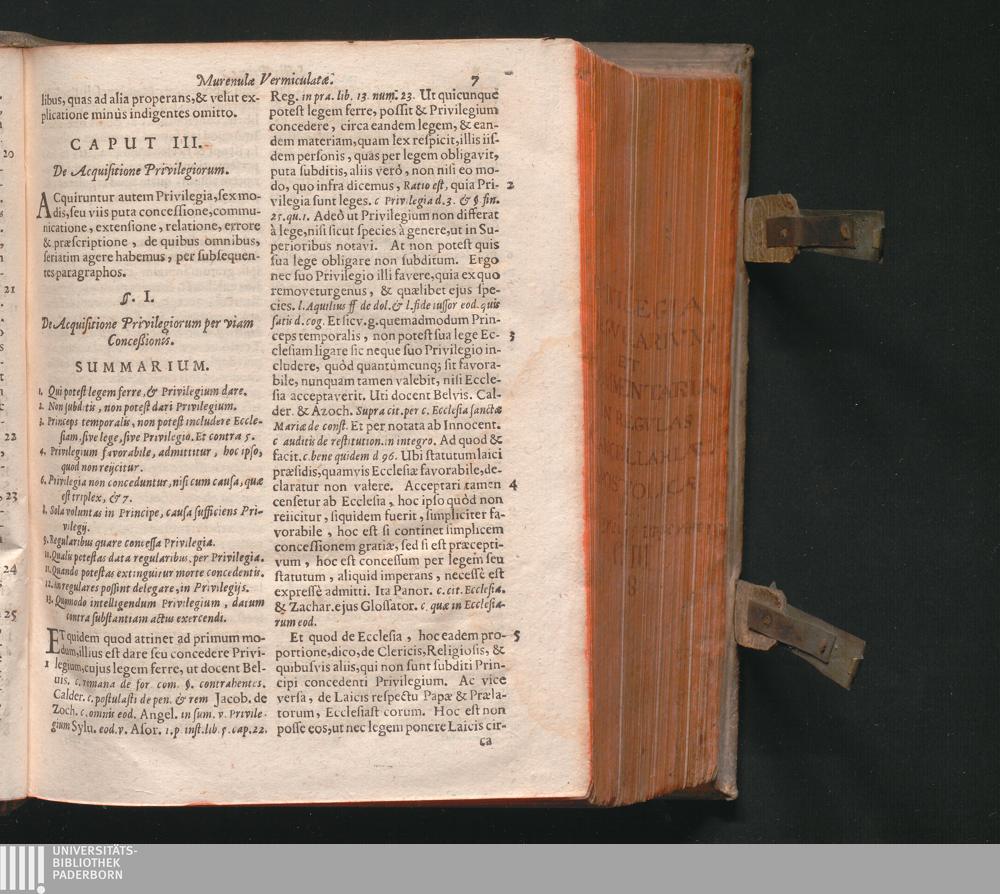 Murenulæ Vermiculatæ. 7
libus, quas ad alia properans,& velut ex-
plicatione minùs indigentes omitto.
CAPUT III.
De Acquisitione Privilegiorum.
ACquiruntur autem Privilegia,sex mo-
dis,seu viis puta concessione,commu-
nicatione, extensione, relatione, errore
& præscriptione, de quibus omnibus,
seriatim agere habemus, per subsequen-
tes paragraphos.
§. I.
De Acquisitione Privilegiorum per viam
Concessionis.
SUMMARIUM.
1. Qui potest legem ferre, & Privilegium dare.
2. Non subditis, non potest dari Privilegium.
3. Princeps temporalis, non potest includere Eccle-
siam, sive lege, sive Privilegio. Et contra 5.
4. Privilegium favorabile, admittitur, hoc ipso,
quod non reijcitur.
6. Privilegia non conceduntur, nisi cum causa, quæ
est triplex, & 7.
8. Sola voluntas in Principe, causa sufficiens Pri-
vilegij.
9. Regularibus quare concessa Privilegia.
11. Qualis potestas data regularibus, per Privilegia.
11. Quando potestas extinguitur morte concedentis.
12. Irregulares possint delegare, in Privilegijs.
13. Quomodo intelligendum Privilegium, datum
contra substantiam actus exercendi.
ET quidem quod attinet ad primum mo-
dum,illius est dare seu concedere Privi-
1 legium,cujus legem ferre, ut docent Bel-
uis. c. romana de for. com. §. contrahentes.
Calder. c. postulasti de pen. & rem Jacob. de
Zoch. c. omnis eod. Angel. in sum. v. Privile-
gium Sylu. eod. v. Asor. 1. p. inst. lib. 5. cap. 22.
Reg. in pra. lib. 13. num. 23. Ut quicunque
potest legem ferre, possit & Privilegium
concedere, circa eandem legem, & ean-
dem materiam,quam lex respicit,illis iis-
dem personis, quas per legem obligavit,
puta subditis, aliis verò, non nisi eo mo-
do, quo infra dicemus, Ratio est, quia Pri- 2
vilegia sunt leges. c Privilegia d. 3. & § fin.
25. qu. 1. Adeò ut Privilegium non differat
à lege,nisi sicut species à genere,ut in Su-
perioribus notavi. At non potest quis
sua lege obligare non subditum. Ergo
nec suo Privilegio illi favere,quia ex quo
removetur genus, & quælibet ejus spe-
cies. l. Aquilius ff de dol. & l. fide iussor eod. quis
satis d. cog. Et sic v. g. quemadmodum Prin-
ceps temporalis, non potest sua lege Ec- 3
clesiam ligare sic neque suo Privilegio in-
cludere, quòd quantumcunq; sit favora-
bile, nunquam tamen valebit, nisi Eccle-
sia acceptaverit. Uti docent Belvis. Cal-
der. & Azoch. Supra cit. per c. Ecclesia sanctæ
Mariæ de const. Et per notata ab Innocent.
c auditis de restitution. in integro. Ad quod &
facit. c. bene quidem d 96. Ubi statutum laici
præsidis,quamvis Ecclesiæ favorabile,de-
claratur non valere. Acceptari tamen 4
censetur ab Ecclesia, hoc ipso quòd non
reiicitur, siquidem fuerit, simpliciter fa-
vorabile, hoc est si continet simplicem
concessionem gratiæ, sed si est præcepti-
vum, hoc est concessum per legem seu
statutum, aliquid imperans, necessè est
expressè admitti. Ita Panor. c. cit. Ecclesia.
& Zachar. ejus Glossator. c. quæ in Ecclesia-
rum eod.
Et quod de Ecclesia, hoc eadem pro- 5
portione,dico,de Clericis,Religiosis, &
quibusvis aliis,qui non sunt subditi Prin-
cipi concedenti Privilegium. Ac vice
versâ, de Laicis respectu Papæ & Præla-
torum, Ecclesiasticorum. Hoc est non
posse eos,ut nec legem ponere Laicis cir-
ca
20
21
22
23
24
25
ET
REGULAS
UNIVERSITÄTS-
BIBLIOTHEK
PADERBORN